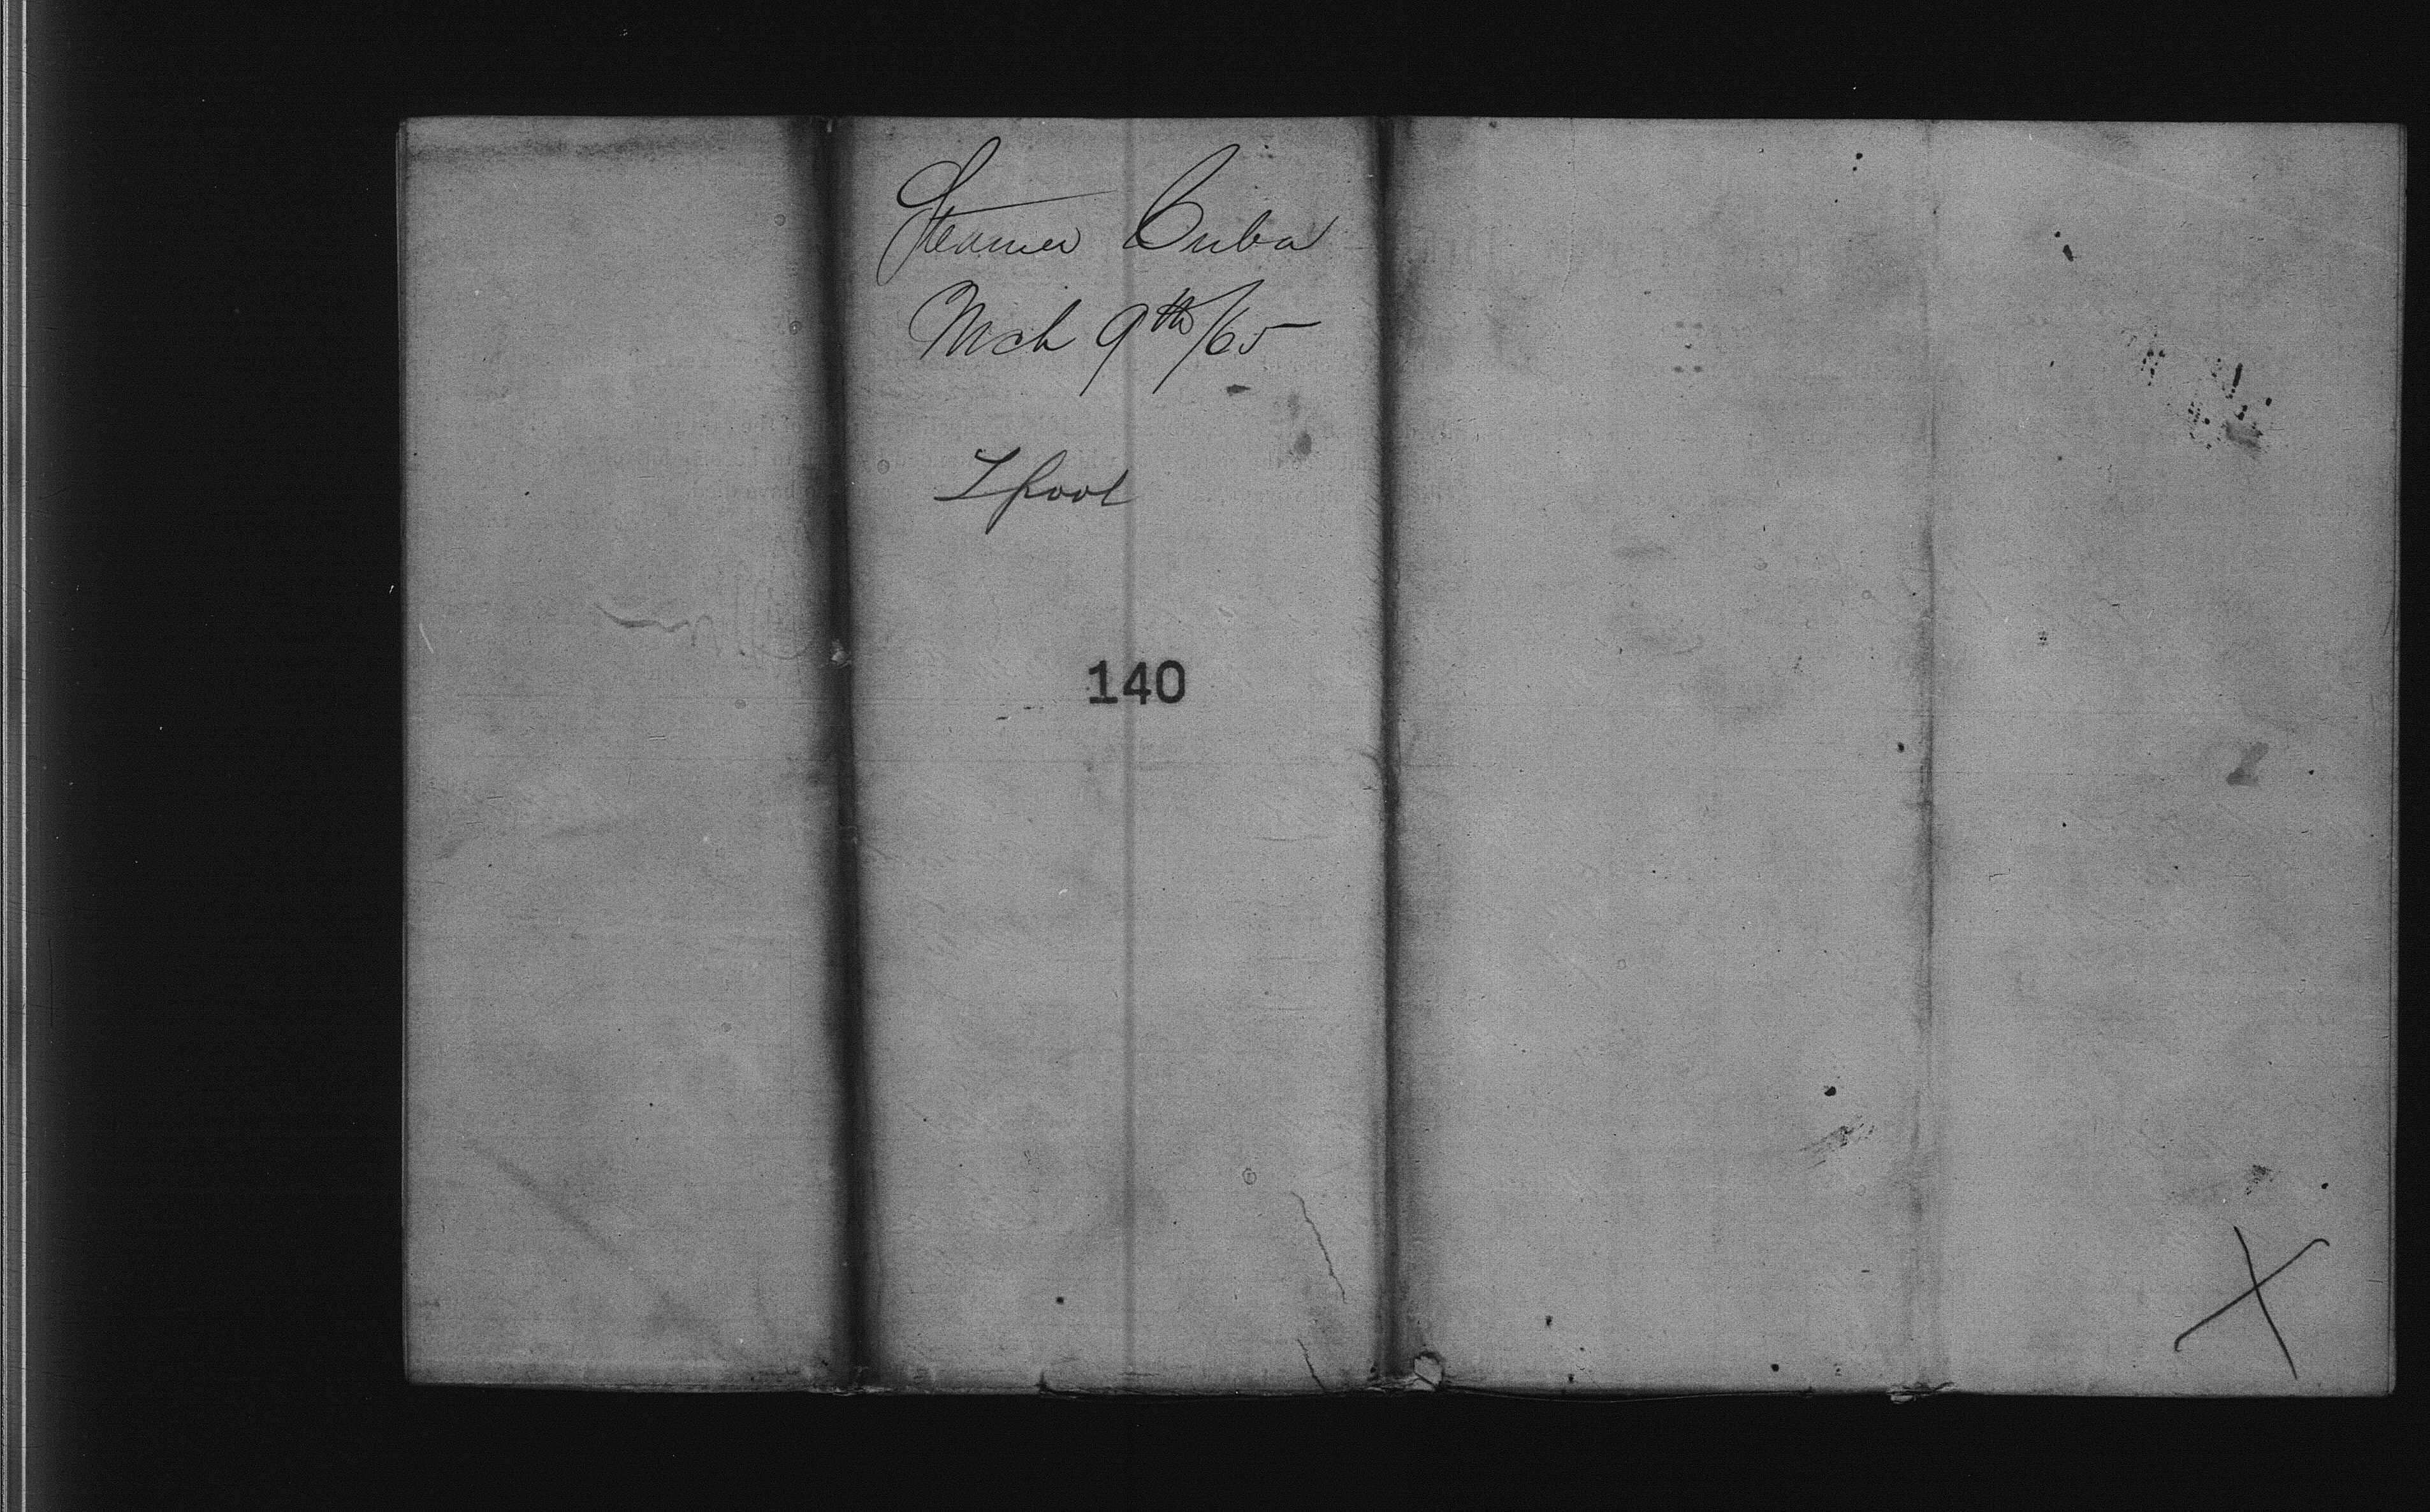 Steamer Cuba
Mch 9th/65
Lpool
140
X